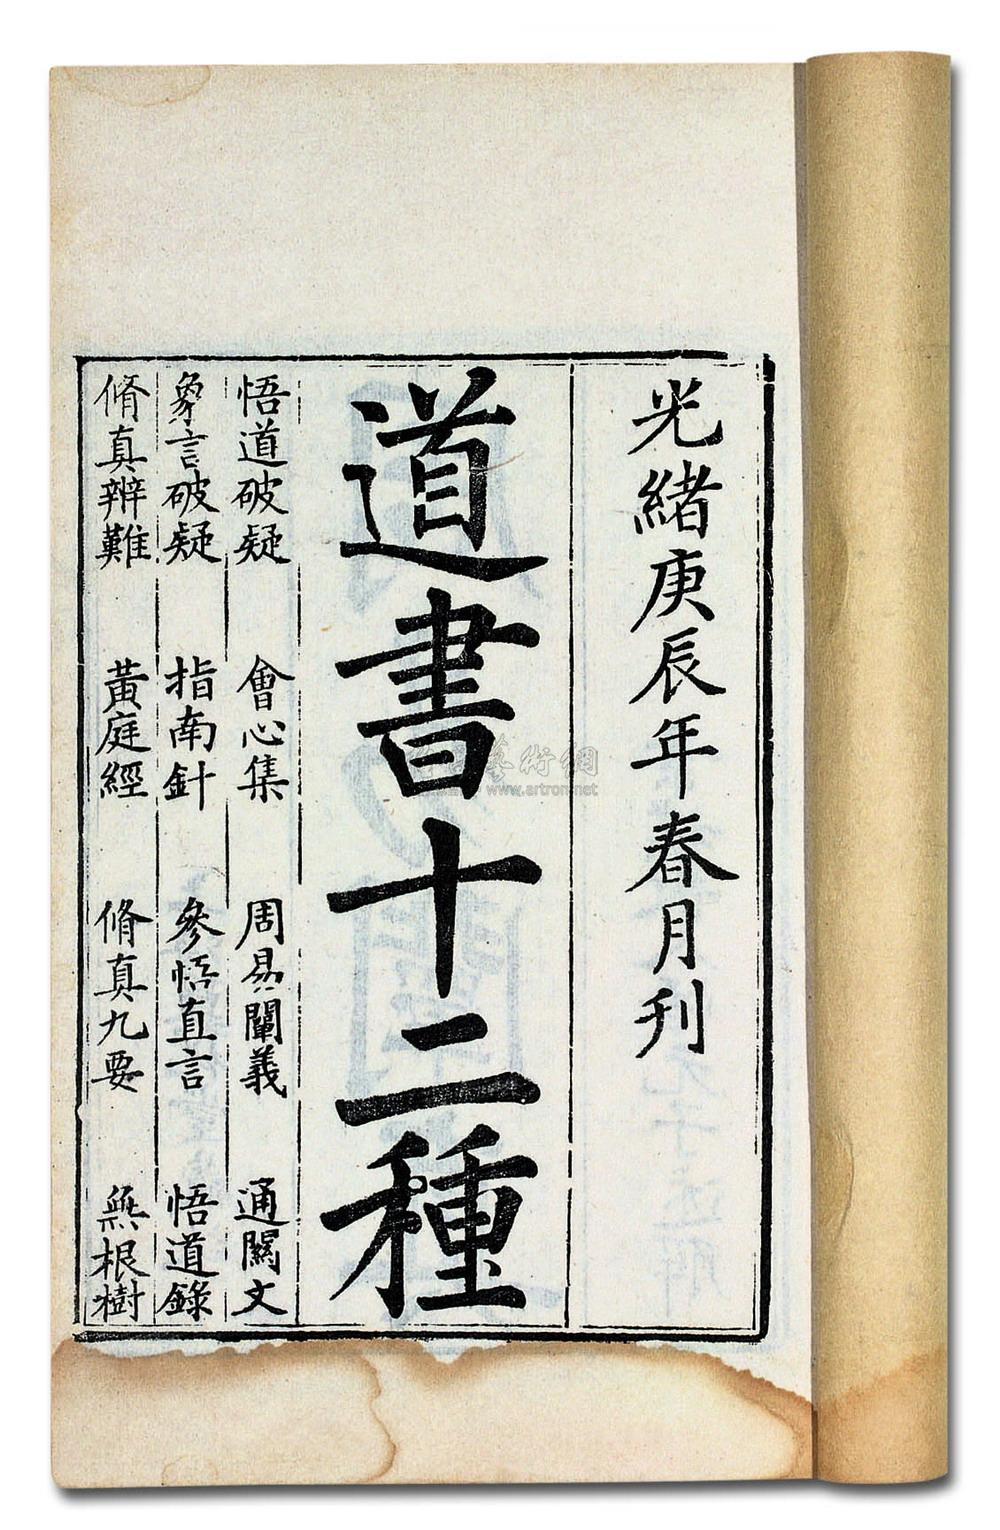 光緒庚辰年春月刊
道書十二種
悟道破疑 會心集 周易闡義 通關文
象言破疑 指南針 參悟直言 悟道錄
脩真辨難 黃庭經 脩真九要 無根樹
藝術網
www.artron.net